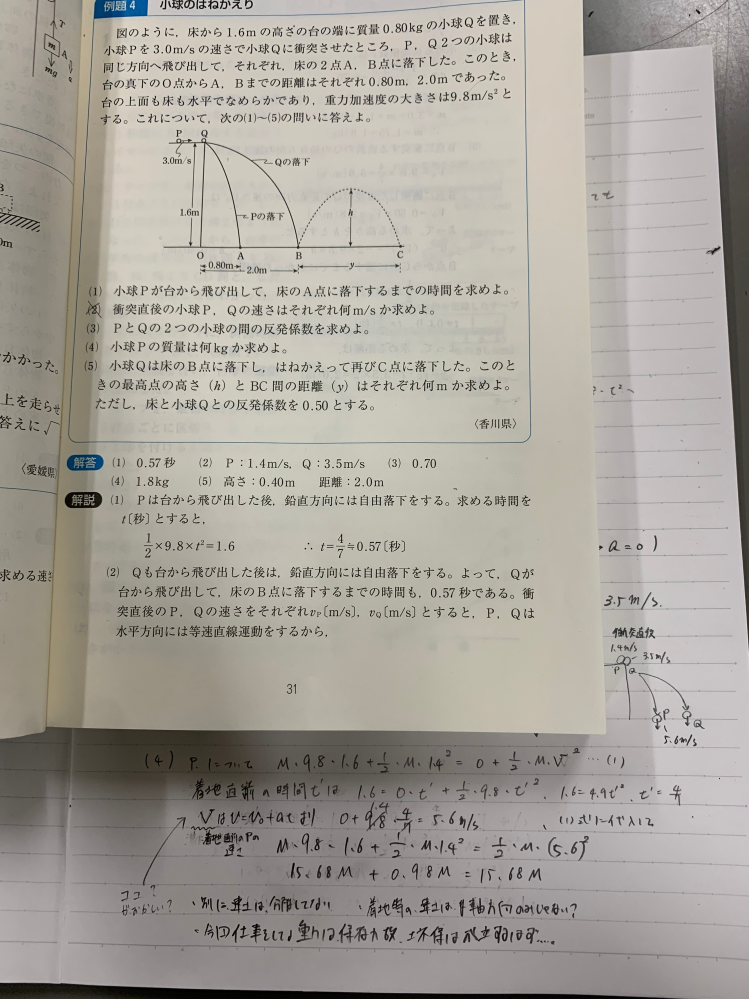 例題 4 小球のはねかえり
図のように，床から1.6mの高さの台の端に質量0.80kgの小球Qを置き，
小球Pを3.0m/sの速さで小球Qに衝突させたところ，P，Q 2つの小球は
同じ方向へ飛び出して，それぞれ，床の2点A，B点に落下した。このとき，
台の真下のO点からA，Bまでの距離はそれぞれ0.80m，2.0mであった。
台の上面も床も水平でなめらかであり，重力加速度の大きさは9.8m/s²と
する。これについて，次の(1)〜(5)の問いに答えよ。
P Q
3.0m/s
Qの落下
1.6m
Pの落下
h
O A B C
0.80m
2.0m
y
(1) 小球Pが台から飛び出して，床のA点に落下するまでの時間を求めよ。
(2) 衝突直後の小球P，Qの速さはそれぞれ何m/sか求めよ。
(3) PとQの2つの小球の間の反発係数を求めよ。
(4) 小球Pの質量は何kgか求めよ。
(5) 小球Qは床のB点に落下し，はねかえって再びC点に落下した。このと
きの最高点の高さ（h）とBC間の距離（y）はそれぞれ何mか求めよ。
ただし，床と小球Qとの反発係数を0.50とする。
〈香川県〉
解答 (1) 0.57秒 (2) P：1.4m/s，Q：3.5m/s (3) 0.70
(4) 1.8kg (5) 高さ：0.40m 距離：2.0m
解説 (1) Pは台から飛び出した後，鉛直方向には自由落下をする。求める時間を
t〔秒〕とすると，
1/2×9.8×t²=1.6 ∴ t=4/7≒0.57〔秒〕
(2) Qも台から飛び出した後は，鉛直方向には自由落下をする。よって，Qが
台から飛び出して，床のB点に落下するまでの時間も，0.57秒である。衝
突直後のP，Qの速さをそれぞれvP〔m/s〕，vQ〔m/s〕とすると，P，Qは
水平方向には等速直線運動をするから，
31
T
m A
mg
B
0m
かかった。
上を走らせ
答えに√
〈愛媛県
求める速
a=0)
3.5m/s.
衝突直後
1.4m/s 3.5m/s
P Q
P Q
5.6m/s
(4) Pについて M・9.8・1.6+1/2・M・1.4²=0+1/2・M・V² …(1)
着地直前の時間t'は 1.6=0・t'+1/2・9.8・t'². 1.6=4.9t'². t'=4/7
Vはv=v₀+atより 0+9.8・4/7=5.6m/s (1)式に代入して
着地直前のPの
速さ
M・9.8・1.6+1/2・M・1.4²=1/2・M・(5.6)²
15.68M+0.98M=15.68M
ココ?
・別に 分解してない ・着地時の
・今回仕事をしてる重力は保存力故